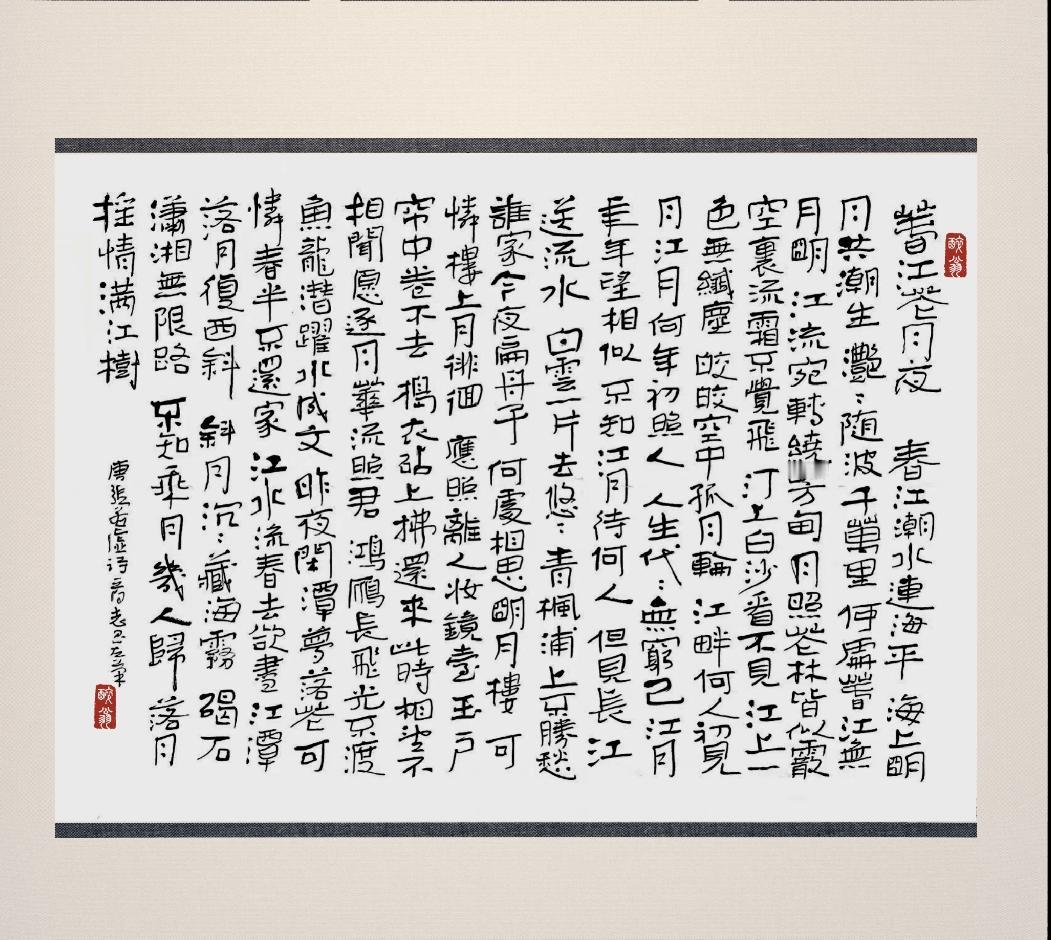 醉翁
春江花月夜 春江潮水連海平 海上朙
月共潮生 灩〻随波千萬里 何處春江無
月朙 江流宛轉繞芳甸 月照花林皆似霰
空裏流霜不覺飛 汀上白沙看不見 江上一
色無纖塵 皎皎空中孤月輪 江畔何人初見
月 江月何年初照人 人生代〻無窮已 江月
年年望相似 不知江月待何人 但見長江
送流水 白雲一片去悠〻 青楓浦上不勝愁
誰家今夜扁舟子 何處相思朙月樓 可
憐樓上月徘徊 應照離人妝鏡臺 玉戶
帘中卷不去 搗衣砧上拂還來 此時相望不
相聞 愿逐月華流照君 鴻鴈長飛光不渡
魚龍潛躍水成文 昨夜閑潭夢落花 可
憐春半不還家 江水流春去欲盡 江潭
落月復西斜 斜月沉〻藏海霧 碣石
瀟湘無限路 不知乘月幾人歸 落月
搖情滿江樹
唐張若虛詩
醉翁